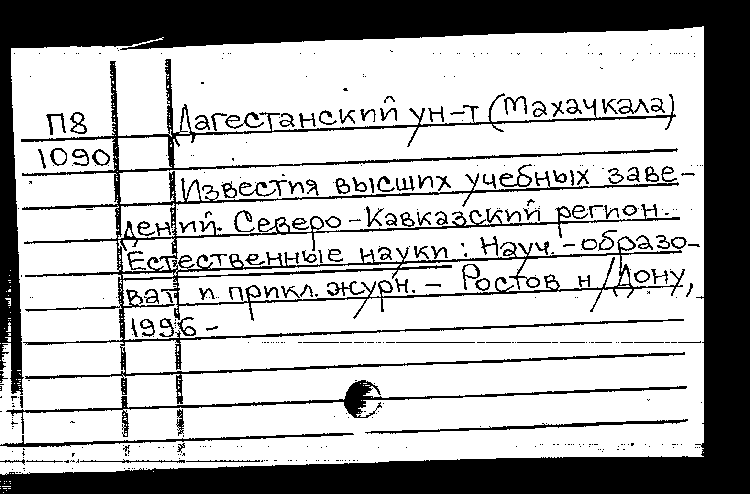 П8 Дагестанский ун-т (Махачкала)
1090
Известия высших учебных заве-
дений. Северо-Кавказский регион.
Естественные науки: Науч.-образо-
ват и прикл. журн. – Ростов н/Дону,
1996 –